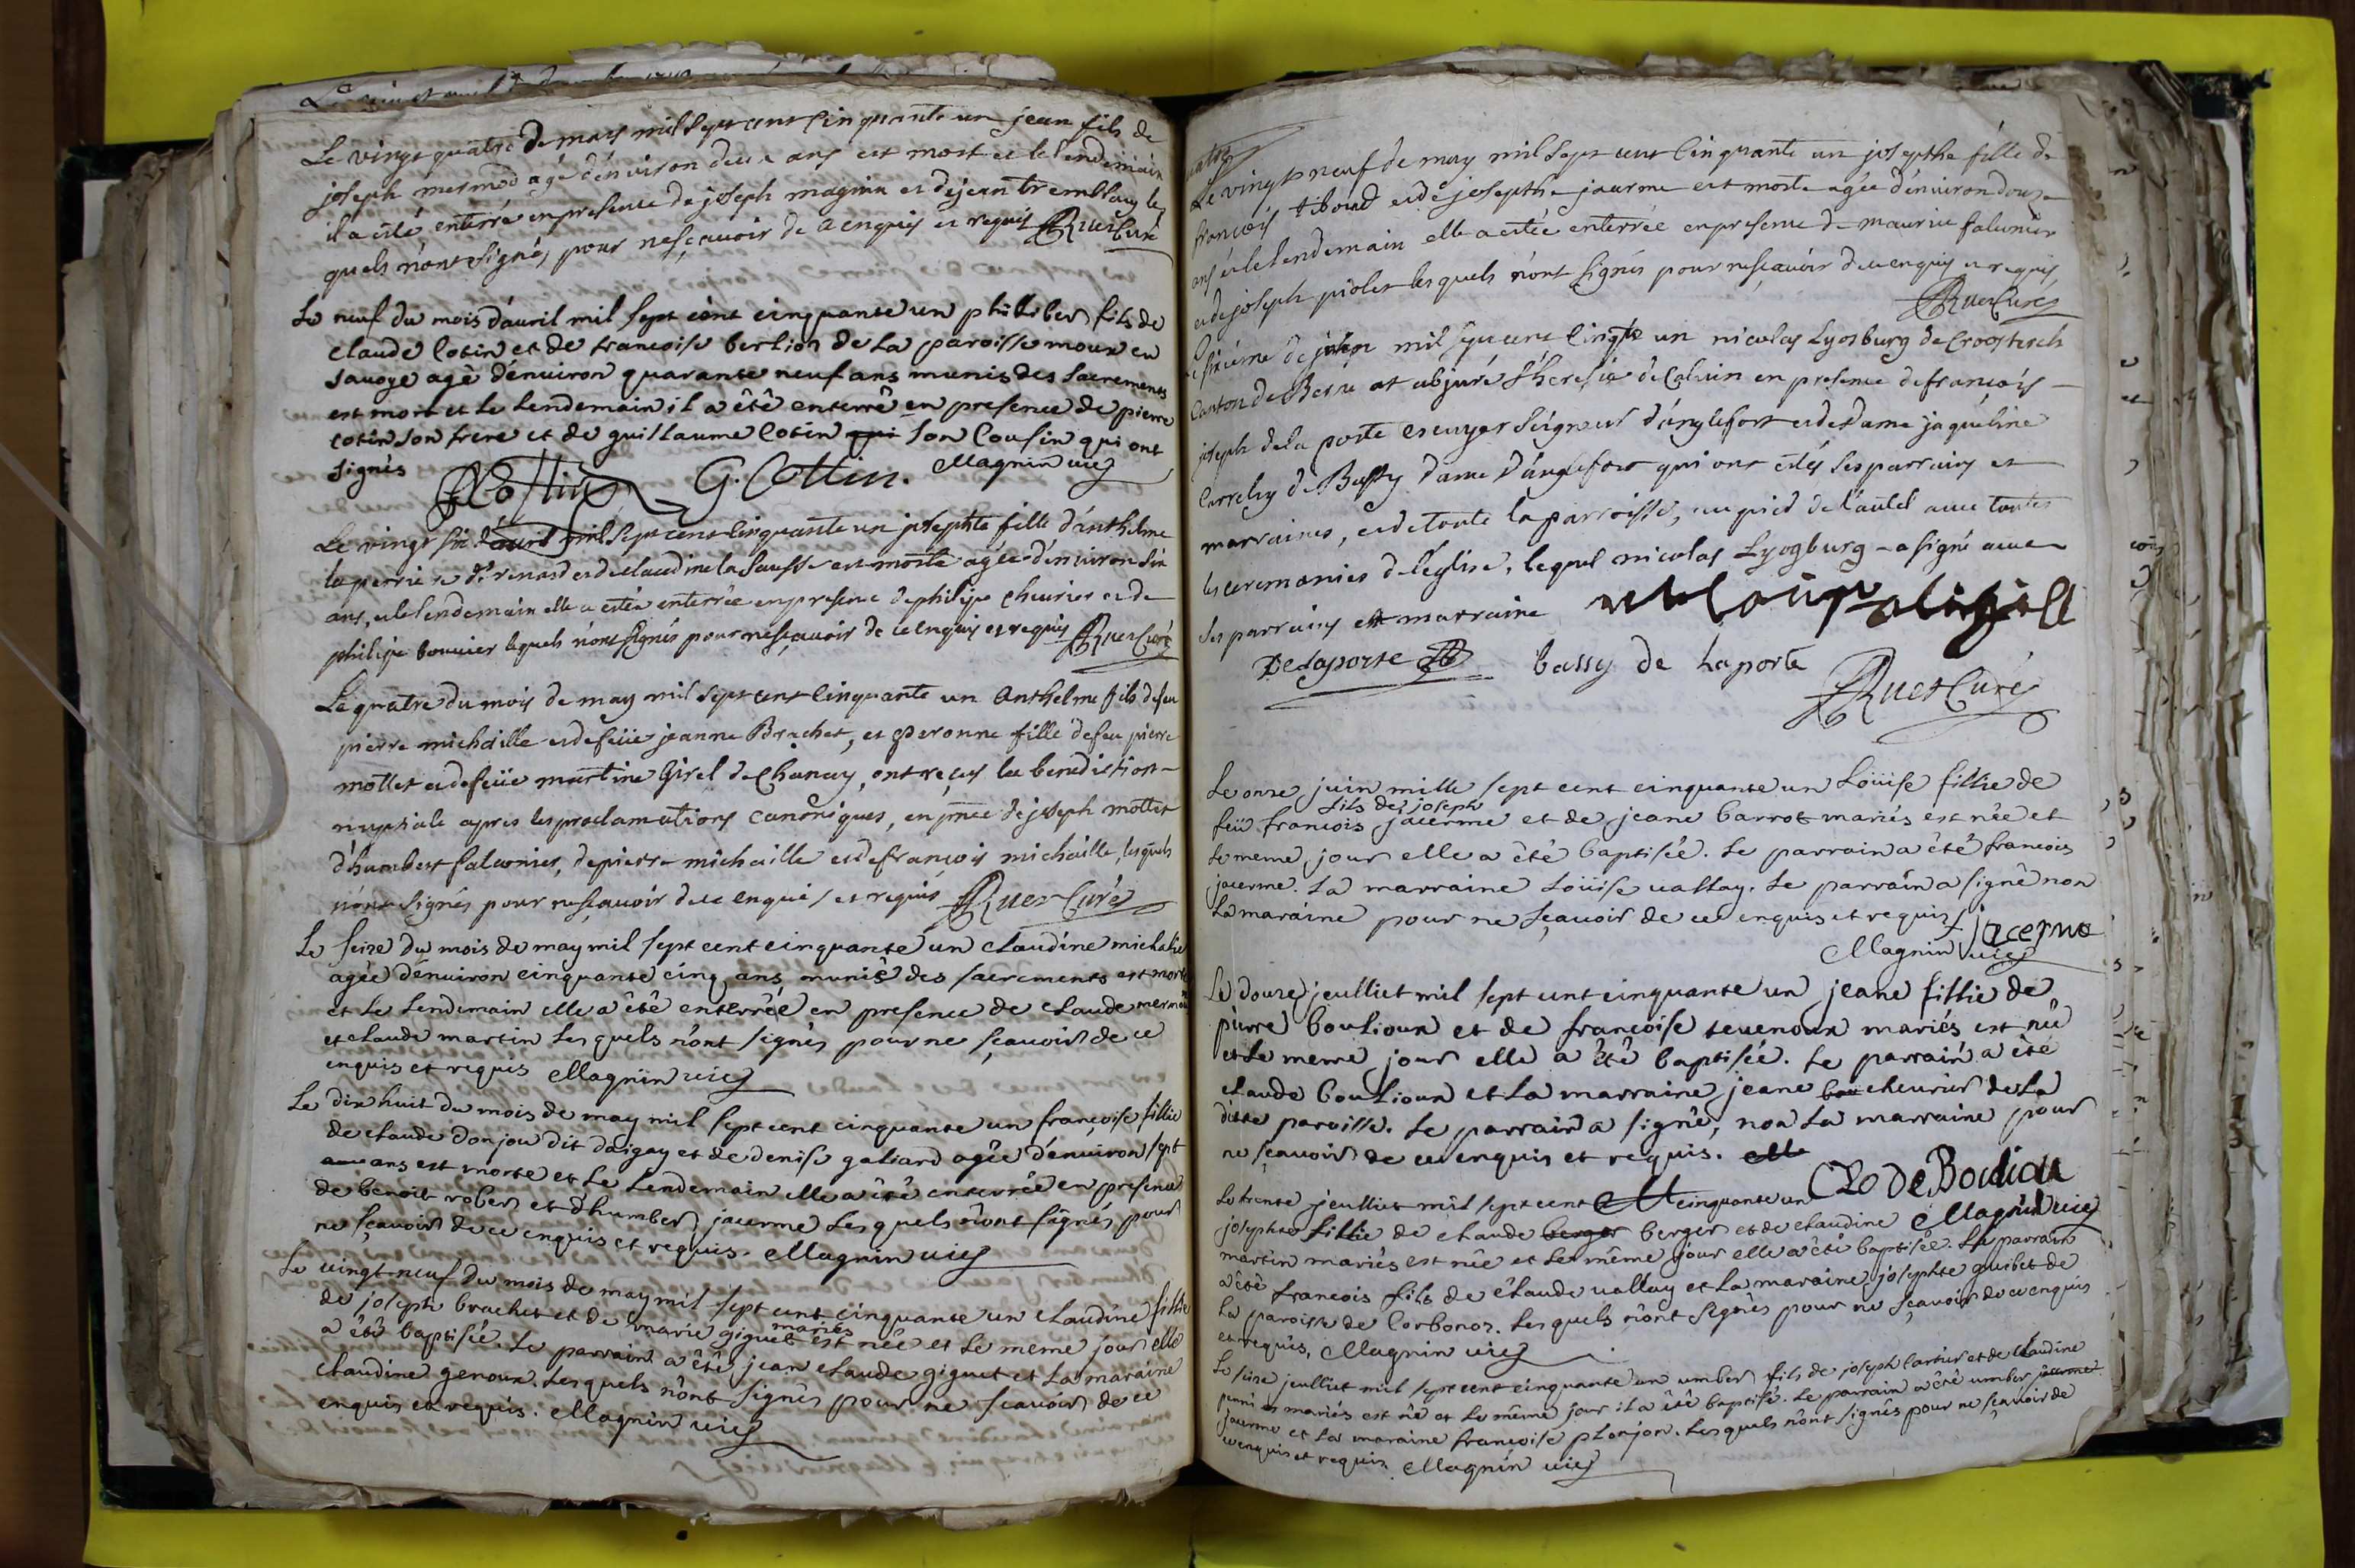 Le vingt quatre de mars mil sept cent cinquante un jean fils de
joseph mermod agé d'environ deux ans est mort et le lendemain
il a été enterré en presence de joseph magnin et de jean tremblay les
quels n'ont signé, pour ne sçavoir de ce enquis et requis Ruet Curé
Le neuf du mois d'auril mil sept cent cinquante un philiber fils de
claude cotin et de francoise berlion de la paroisse moux en
sauoye agé d'enuiron quarante neuf ans munis des sacrements
est mort et le lendemain il a été enterré en presence de pierre
cotin son frere et de guillaume cotin qui son cousin qui ont
signés G. Cottin. Magnin vic
Le vingt six d'auril mil sept cent cinquante un josephte fille d'anthelme
la perriere de renard et de claudine la sausse est morte agée d'environ six
ans, et le lendemain elle a estée enterrée en presence de philipe cheurier et de
philipe bouuier lesquels n'ont signés pour ne sçauoir de ce enquis et requis Ruet Curé
Le quatre du mois de may mil sept cent cinquante un Anthelme fils de feu
pierre michaille et de feüe jeanne Brachet, et peronne fille de feu pierre
mottet et de feüe martine Girel de Chanay, ont reçus la benediction
nuptiale apres les proclamations canoniques, en pnce de joseph mottet
d'humbert falconier, de pierre michaille et de françois michaille, lesquels
n'ont signés pour ne sçauoir de ce enquis et requis Ruet Curé
Le seize du mois de may mil sept cent cinquante un claudine michalie
agée d'enuiron cinquante cinq ans munie des sacrements est morte
et le lendemain elle a été enterrée en presence de claude mermon
et claude martin les quels n'ont signés pour ne sçauoir de ce
enquis et requis Magnin vic
Le dix huit du mois de may mil sept cent cinquante un françoise fillie
de claude donjou dit daigay et de denise galiard agée d'enuiron sept
ans est morte et le lendemain elle a été enterrée en presence
de benoit rober et d'humber jacerme les quels n'ont signés pour
ne sçauoir de ce enquis et requis. Magnin vic
Le vingt neuf du mois de may mil sept cent cinquante un claudine fillie
de joseph brachet et de marie giguet mariés est née et le meme jour elle
a été baptisée. Le parrain a été jean claude giguet et la maraine
claudine genoux. Les quels n'ont signés pour ne sçauoir de ce
enquis et requis. Magnin vic
Le vingt neuf de may mil sept cent cinquante un josepthe fille de
françois tiboud et de josepthe jaurme est morte agée d'enuiron douze
ans et le lendemain elle a estée enterrée en presence de maurice falconier
et de joseph piolet lesquels n'ont signés pour ne sçavoir de ce enquis et requis
Ruet Curé
sixieme de juin mil sept cent cinqte un nicolas Lyosburg de
Canton de Berne at abjuré l'heresie de Calvin en presence de françois
joseph de la porte escuyer seigneur d'anglefort et de dame jaqueline
de Bassy dame d'anglefort qui ont estés ses parrains et
marraines, et de toute la parroisse, au pied de l'autel avec toutes
les ceremonies de l'eglise, lequel nicolas Lyogburg a signé avec
ses parrains et marraine
Delaporte bassy de Laporte
Ruet Curé
Le onze juin mille sept cent cinquante un Loüise fillie de
feü francois fils de joseph jacerme et de jeane barrot mariés est née et
le meme jour elle a été baptisée. Le parrain a été francois
jacerme. La marraine Loüise vallay. Le parrain a signé non
La maraine pour ne sçauoir de ce enquis et requis f jacerme
Magnin vic
Le douze jeulliet mil sept cent cinquante un jeane fillie de
pierre boulioux et de francoise teuenoux mariés est née
et le meme jour elle a été baptisée. Le parrain a été
claude boulioux et la marraine jeane bou cheurier de la
ditte paroisse. Le parrain a signé, non la marraine pour
ne sçauoir de ce enquis et requis. De Boulioux
Le trente jeulliet mil sept cent cinquante un
josephte fillie de claude berger berger et de claudine Magnin vic
martin mariés est née et le même jour elle a été baptisée. Le parrain
a été francois fils de claude vallay et la maraine josephte guibet de
la paroisse de Corbonoz. Les quels n'ont signés pour ne sçauoir de ce enquis
et requis, Magnin vic
Le seize jeulliet mil sept cent cinquante un umber fils de joseph et de claudine
mariés est né et le même jour il a été baptisé. Le parrain a été umber jacerme
jacerme et la maraine francoise plonjon. Les quels n'ont signés pour ne sçauoir de
ce enquis et requis Magnin vic